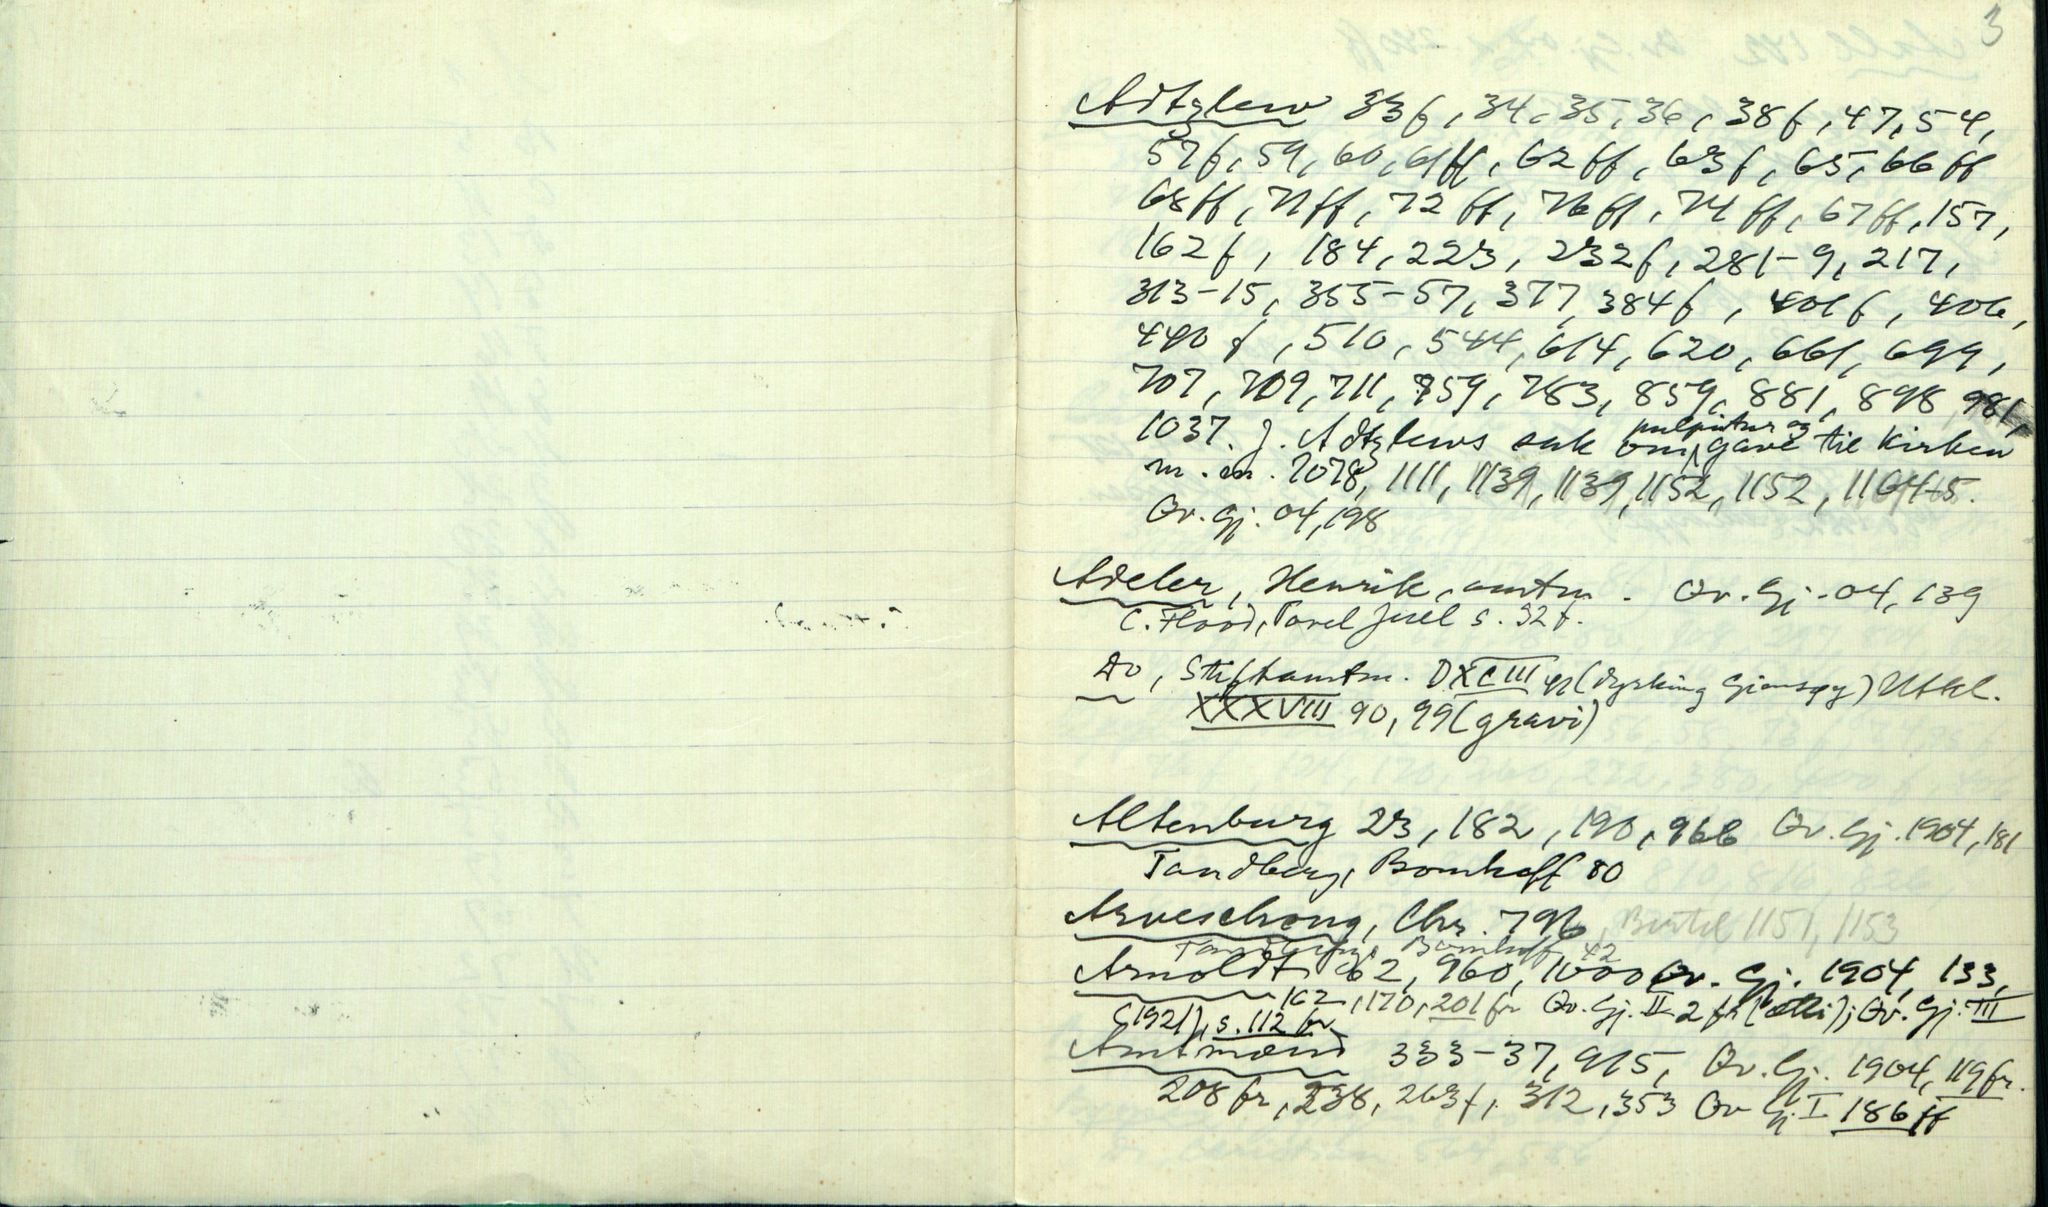 3
Adtzlew 33f, 34, 35, 36, 38f, 47, 54,
57f, 59, 60, 61ff, 62ff, 63f, 65, 66ff
68ff, 71ff, 72ff, 76ff, 74ff, 67ff, 157,
162f, 184, 223, 232f, 281-9, 217,
313-15, 355-57, 377, 384f, 401f, 406,
440f, 510, 544, 614, 620, 661, 699,
707, 709, 711, 759, 783, 859, 881, 898, 981,
1037. J. Adtzlews sak om pulpitur og gave til kirken
m.m. 1078, 1111, 1139, 1139, 1152, 1152, 1164-65.
Qv. Gj. 04, 198
Adeler, Henrik, amtm. Qv. Gj. 04, 139
C. Flood, Povel Juel s. 32f.
Do, Stiftamtm. DXCIII (dyrking Gjemsøy) Utkl.
XXXVIII 90, 99 (gravi)
Altenburg 23, 182, 190, 966 Qv. Gj. 1904, 181
Tandberg, Bomhoff 80
Arveschoug, Chr. 796, Bertel 1151, 1153
Tandberg, Bomhoff 42
Arnoldt 62, 960, 1000 Qv. Gj. 1904, 133,
162, 170, 201fr Qv. Gj. II 2 fr (ætli); Qv. Gj. III
(1921), s. 112 fr
Amtmænd 333-37, 915, Qv. Gj. 1904, 119fr.
208fr, 238, 263f, 312, 353 Qv Gj. I 186ff